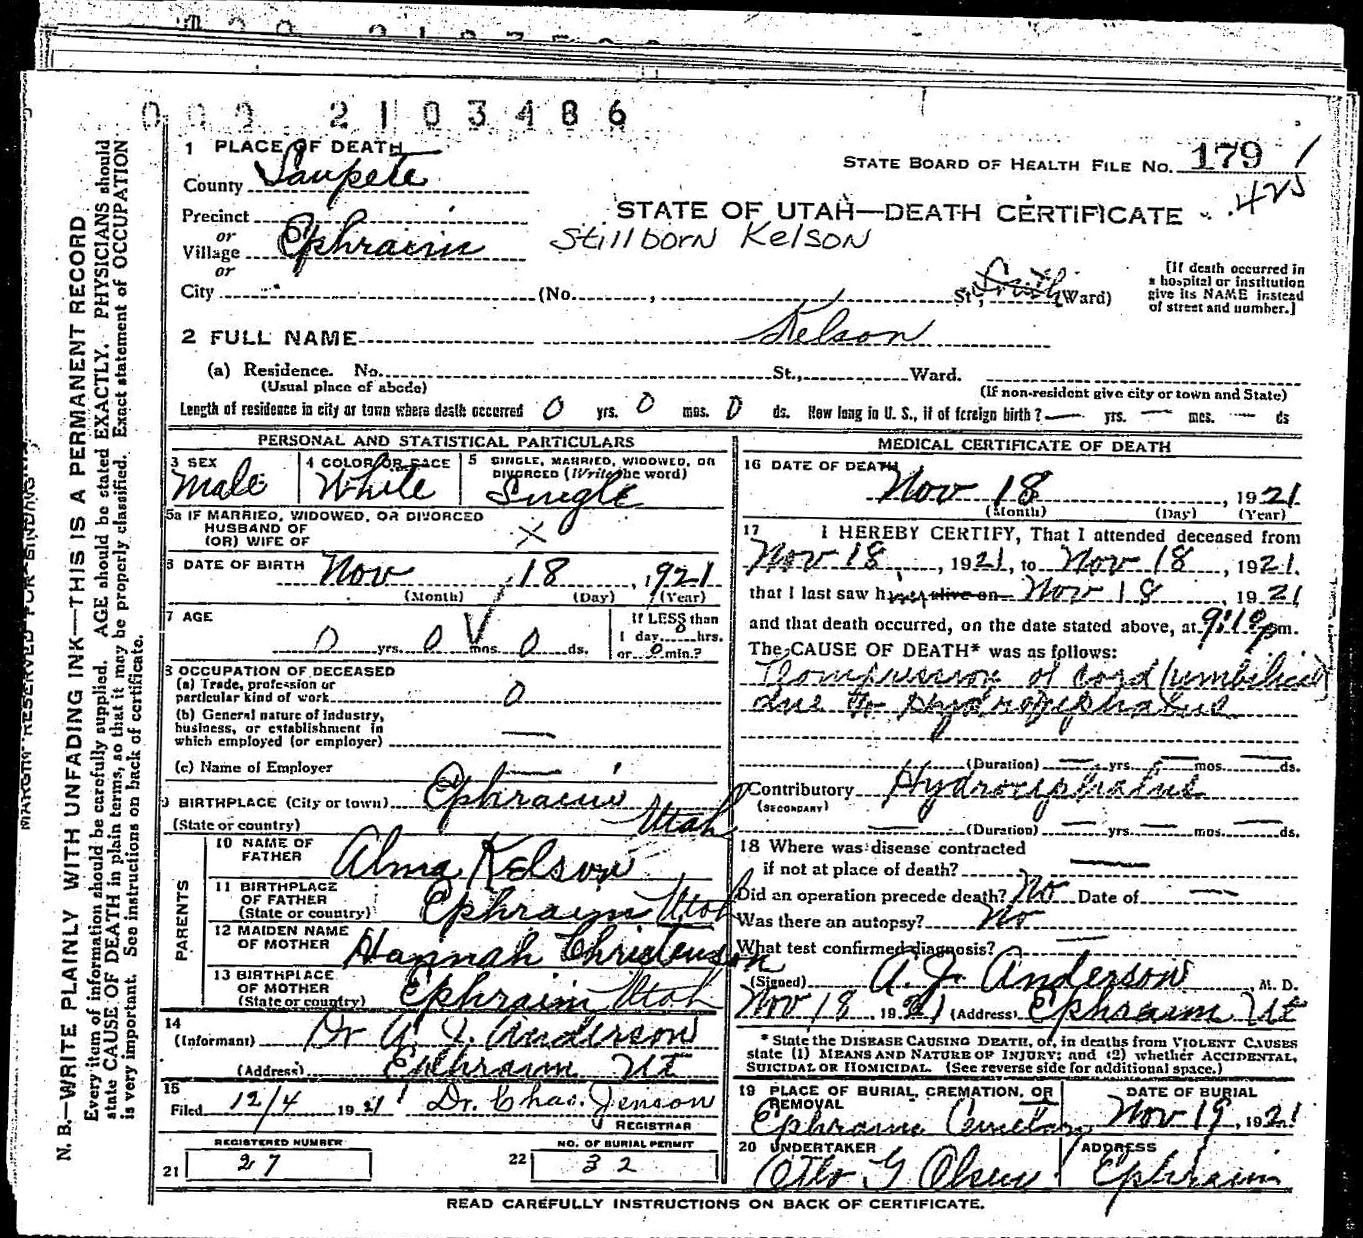 000 2103486
1 PLACE OF DEATH
STATE BOARD OF HEALTH FILE No. 179 1
County Sanpete
425
Precinct
STATE OF UTAH—DEATH CERTIFICATE
or
Village Ephraim
Stillborn Kelson
or
City (No. , St., Ward)
[If death occurred in
a hospital or institution
give its NAME instead
of street and number.]
2 FULL NAME Kelson
(a) Residence. No. St., Ward.
(Usual place of abode) (If non-resident give city or town and State)
Length of residence in city or town where death occurred 0 yrs. 0 mos. 0 ds. How long in U. S., if of foreign birth? — yrs. — mos. — ds
PERSONAL AND STATISTICAL PARTICULARS
3 SEX
Male
4 COLOR OR RACE
White
5 SINGLE, MARRIED, WIDOWED, OR
DIVORCED (Write the word)
Single
5a IF MARRIED, WIDOWED, OR DIVORCED
HUSBAND OF
(OR) WIFE OF
X
6 DATE OF BIRTH Nov 18, 1921
(Month) (Day) (Year)
7 AGE
0 yrs. 0 mos 0 ds.
If LESS than
1 day 0 hrs.
or 0 min.?
8 OCCUPATION OF DECEASED
(a) Trade, profession or
particular kind of work 0
(b) General nature of industry,
business, or establishment in
which employed (or employer) —
(c) Name of Employer —
9 BIRTHPLACE (City or town) Ephraim
(State or country) Utah
PARENTS
10 NAME OF
FATHER Alma Kelson
11 BIRTHPLACE
OF FATHER
(State or country) Ephraim Utah
12 MAIDEN NAME
OF MOTHER Hannah Christenson
13 BIRTHPLACE
OF MOTHER
(State or country) Ephraim Utah
14
(Informant) Dr A. J. Anderson
(Address) Ephraim Ut
15
Filed 12/4 1921 Dr. Chas. Jenson
REGISTRAR
REGISTERED NUMBER
21 27
NO. OF BURIAL PERMIT
22 32
MEDICAL CERTIFICATE OF DEATH
16 DATE OF DEATH
Nov 18, 1921
(Month) (Day) (Year)
17 I HEREBY CERTIFY, That I attended deceased from
Nov 18, 1921, to Nov 18, 1921.
that I last saw him alive on Nov 18, 1921
and that death occurred, on the date stated above, at 9:10 pm.
The CAUSE OF DEATH* was as follows:
Compression of Cord (umbilical)
due to Hydrocephalus
(Duration) — yrs. — mos. — ds.
Contributory Hydrocephalus
(SECONDARY)
— (Duration) — yrs. — mos. — ds.
18 Where was disease contracted
if not at place of death? —
Did an operation precede death? No Date of —
Was there an autopsy? No
What test confirmed diagnosis? —
(Signed) A. J. Anderson, M. D.
Nov 18 1921 (Address) Ephraim Ut
* State the DISEASE CAUSING DEATH, or, in deaths from VIOLENT CAUSES
state (1) MEANS AND NATURE OF INJURY; and (2) whether ACCIDENTAL,
SUICIDAL OR HOMICIDAL. (See reverse side for additional space.)
19 PLACE OF BURIAL, CREMATION, OR
REMOVAL
Ephraim Cemetary
DATE OF BURIAL
Nov 19, 1921
20 UNDERTAKER
Otto G Olsen
ADDRESS
Ephraim
READ CAREFULLY INSTRUCTIONS ON BACK OF CERTIFICATE.
MARGIN RESERVED FOR BINDING
N. B.—WRITE PLAINLY WITH UNFADING INK—THIS IS A PERMANENT RECORD
Every item of information should be carefully supplied. AGE should be stated EXACTLY. PHYSICIANS should
state CAUSE OF DEATH in plain terms, so that it may be properly classified. Exact statement of OCCUPATION
is very important. See instructions on back of certificate.